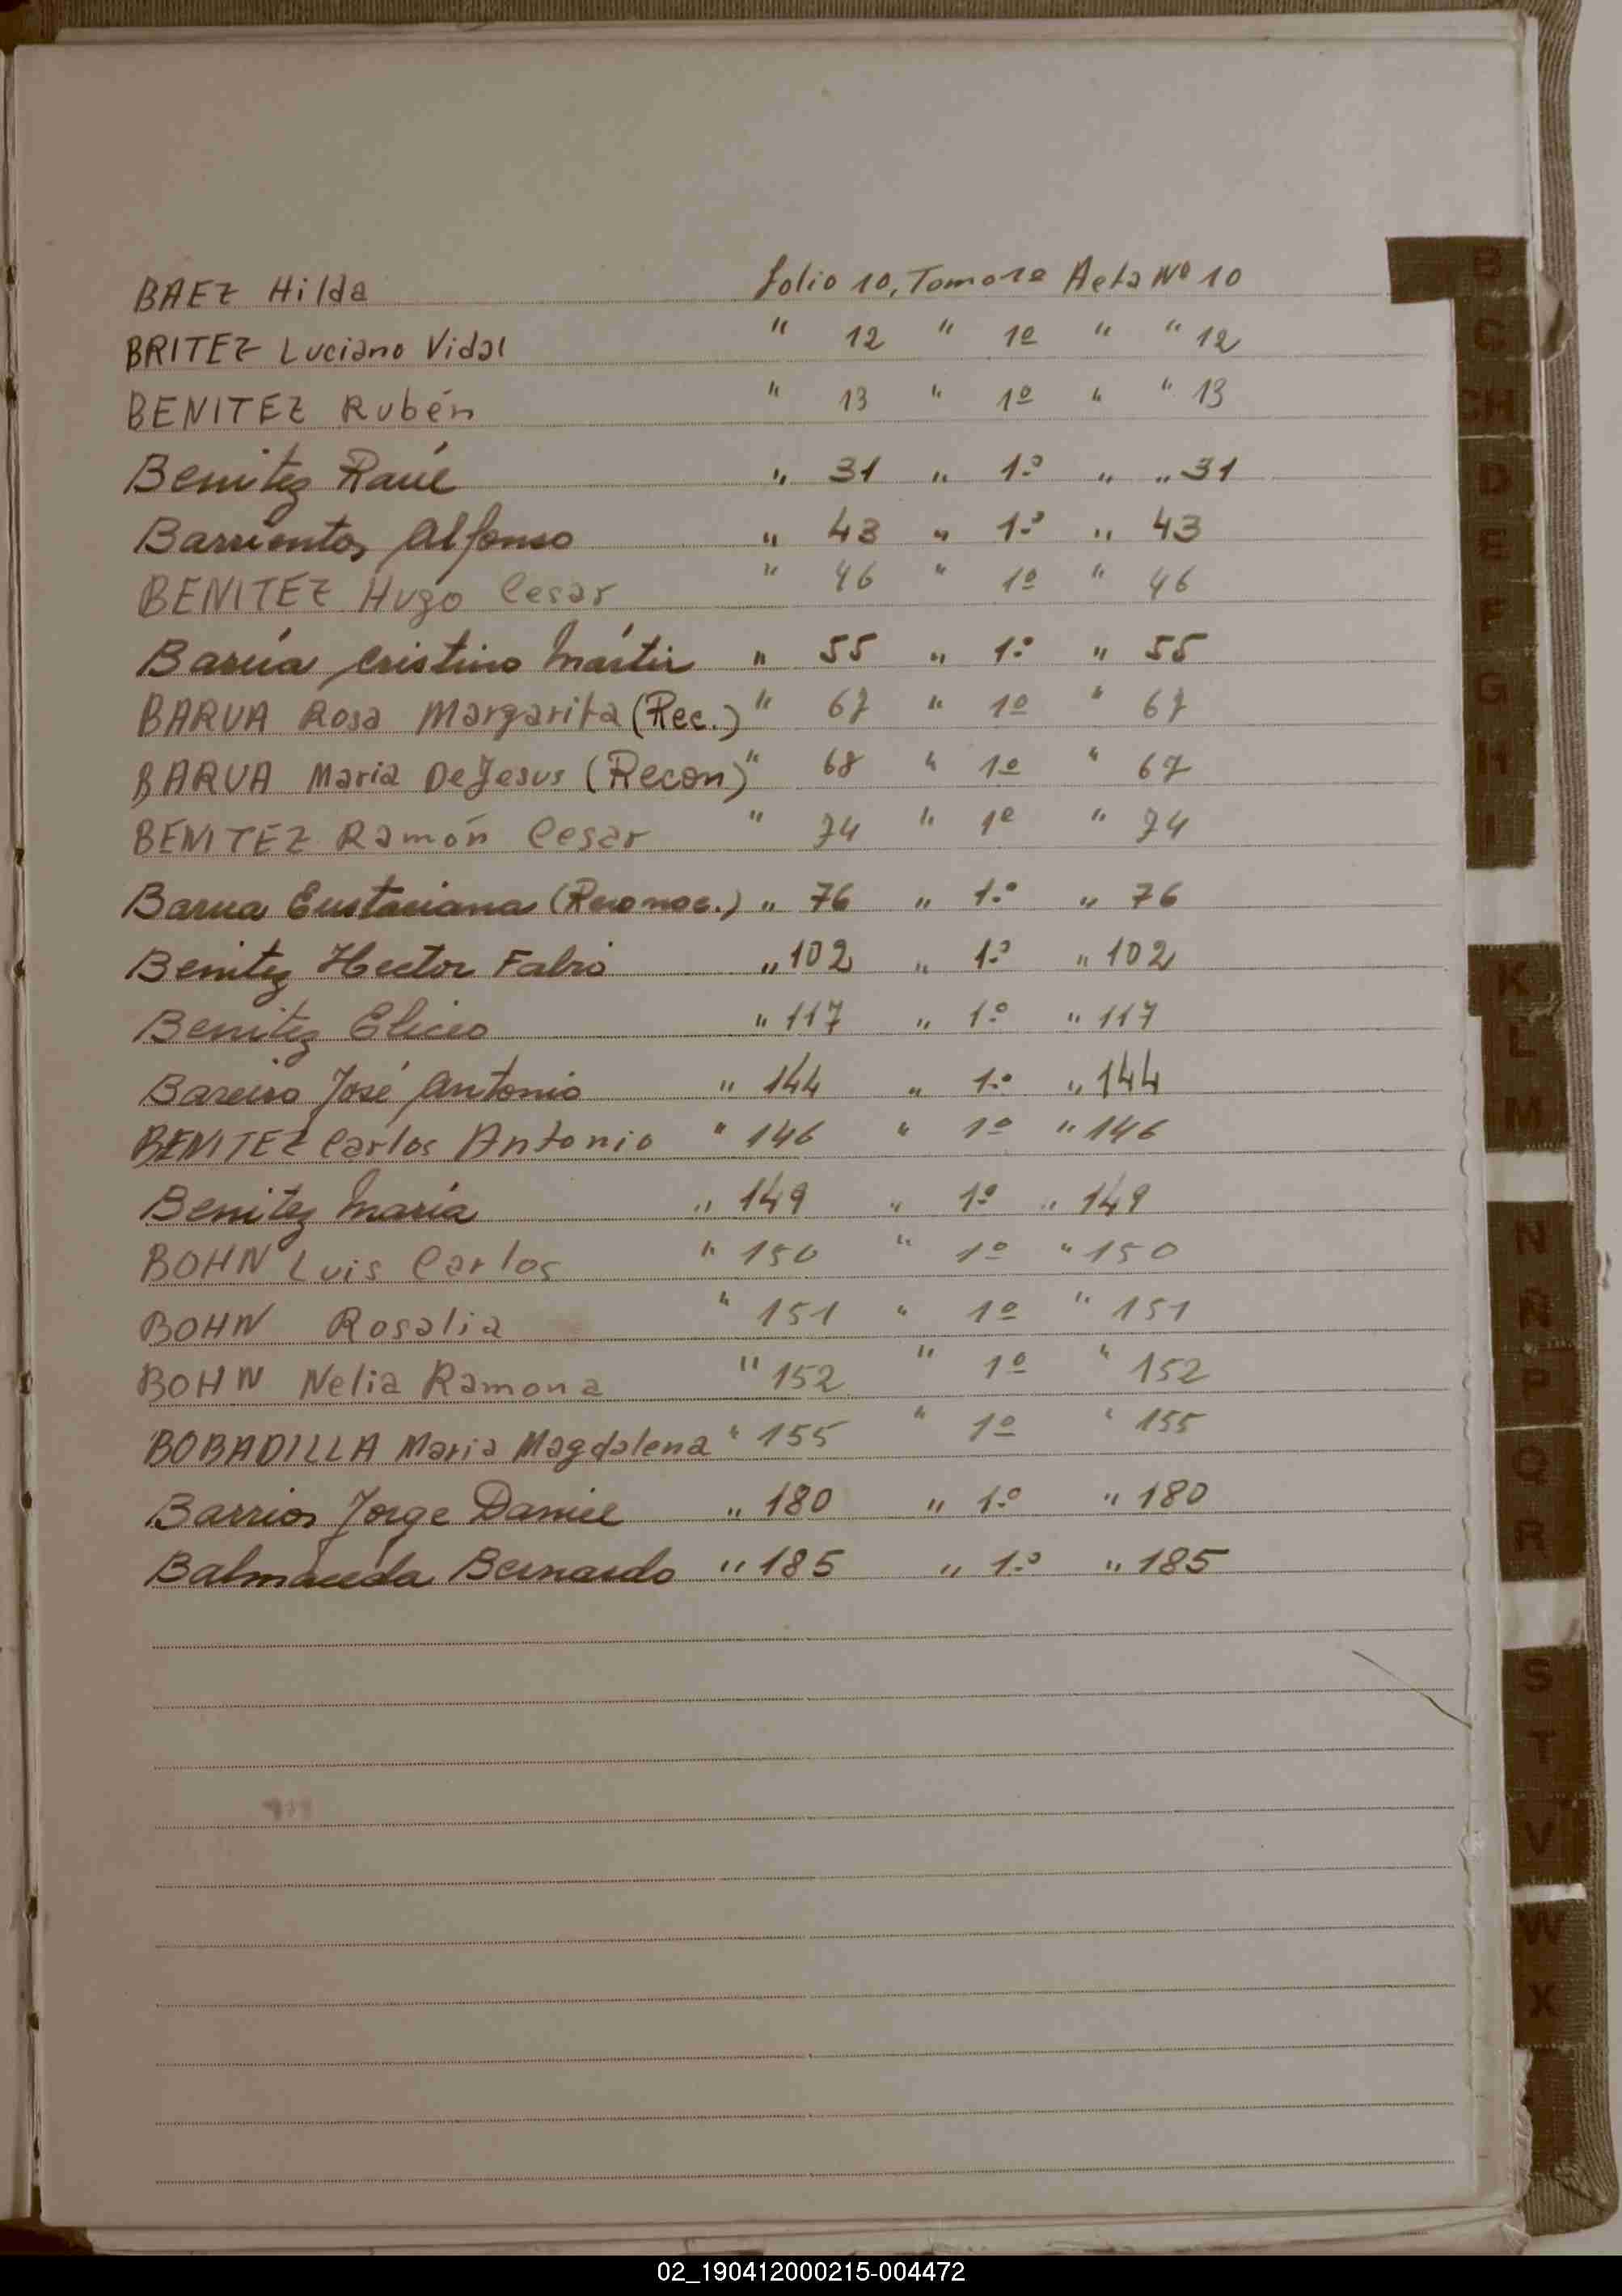 BAEZ Hilda folio 10, Tomo 1º Acta Nº 10
BRITEZ Luciano Vidal " 12 " 1º " " 12
BENITEZ Rubén " 13 " 1º " " 13
Benitez Raúl " 31 " 1º " " 31
Barrientos Alfonso " 43 " 1º " 43
BENITEZ Hugo Cesar " 46 " 1º " 46
Barúa Cristino Mártir " 55 " 1º " 55
BARUA Rosa Margarita (Rec.) " 67 " 1º " 67
BARUA Maria De Jesus (Recon) " 68 " 1º " 67
BENITEZ Ramón Cesar " 74 " 1º " 74
Barua Eustaciana (Reconoc.) " 76 " 1º " 76
Benitez Hector Fabio " 102 " 1º " 102
Benitez Elicio " 117 " 1º " 117
Bareiro José Antonio " 144 " 1º " 144
BENITEZ Carlos Antonio " 146 " 1º " 146
Benitez María " 149 " 1º " 149
BOHN Luis Carlos " 150 " 1º " 150
BOHN Rosalia " 151 " 1º " 151
BOHN Nelia Ramona " 152 " 1º " 152
BOBADILLA Maria Magdalena " 155 " 1º " 155
Barrios Jorge Daniel " 180 " 1º " 180
Balmaceda Bernardo " 185 " 1º " 185
B
C
CH
D
E
F
G
H
I
K
L
M
N
Ñ
P
Q
R
S
T
V
W
X
02_190412000215-004472